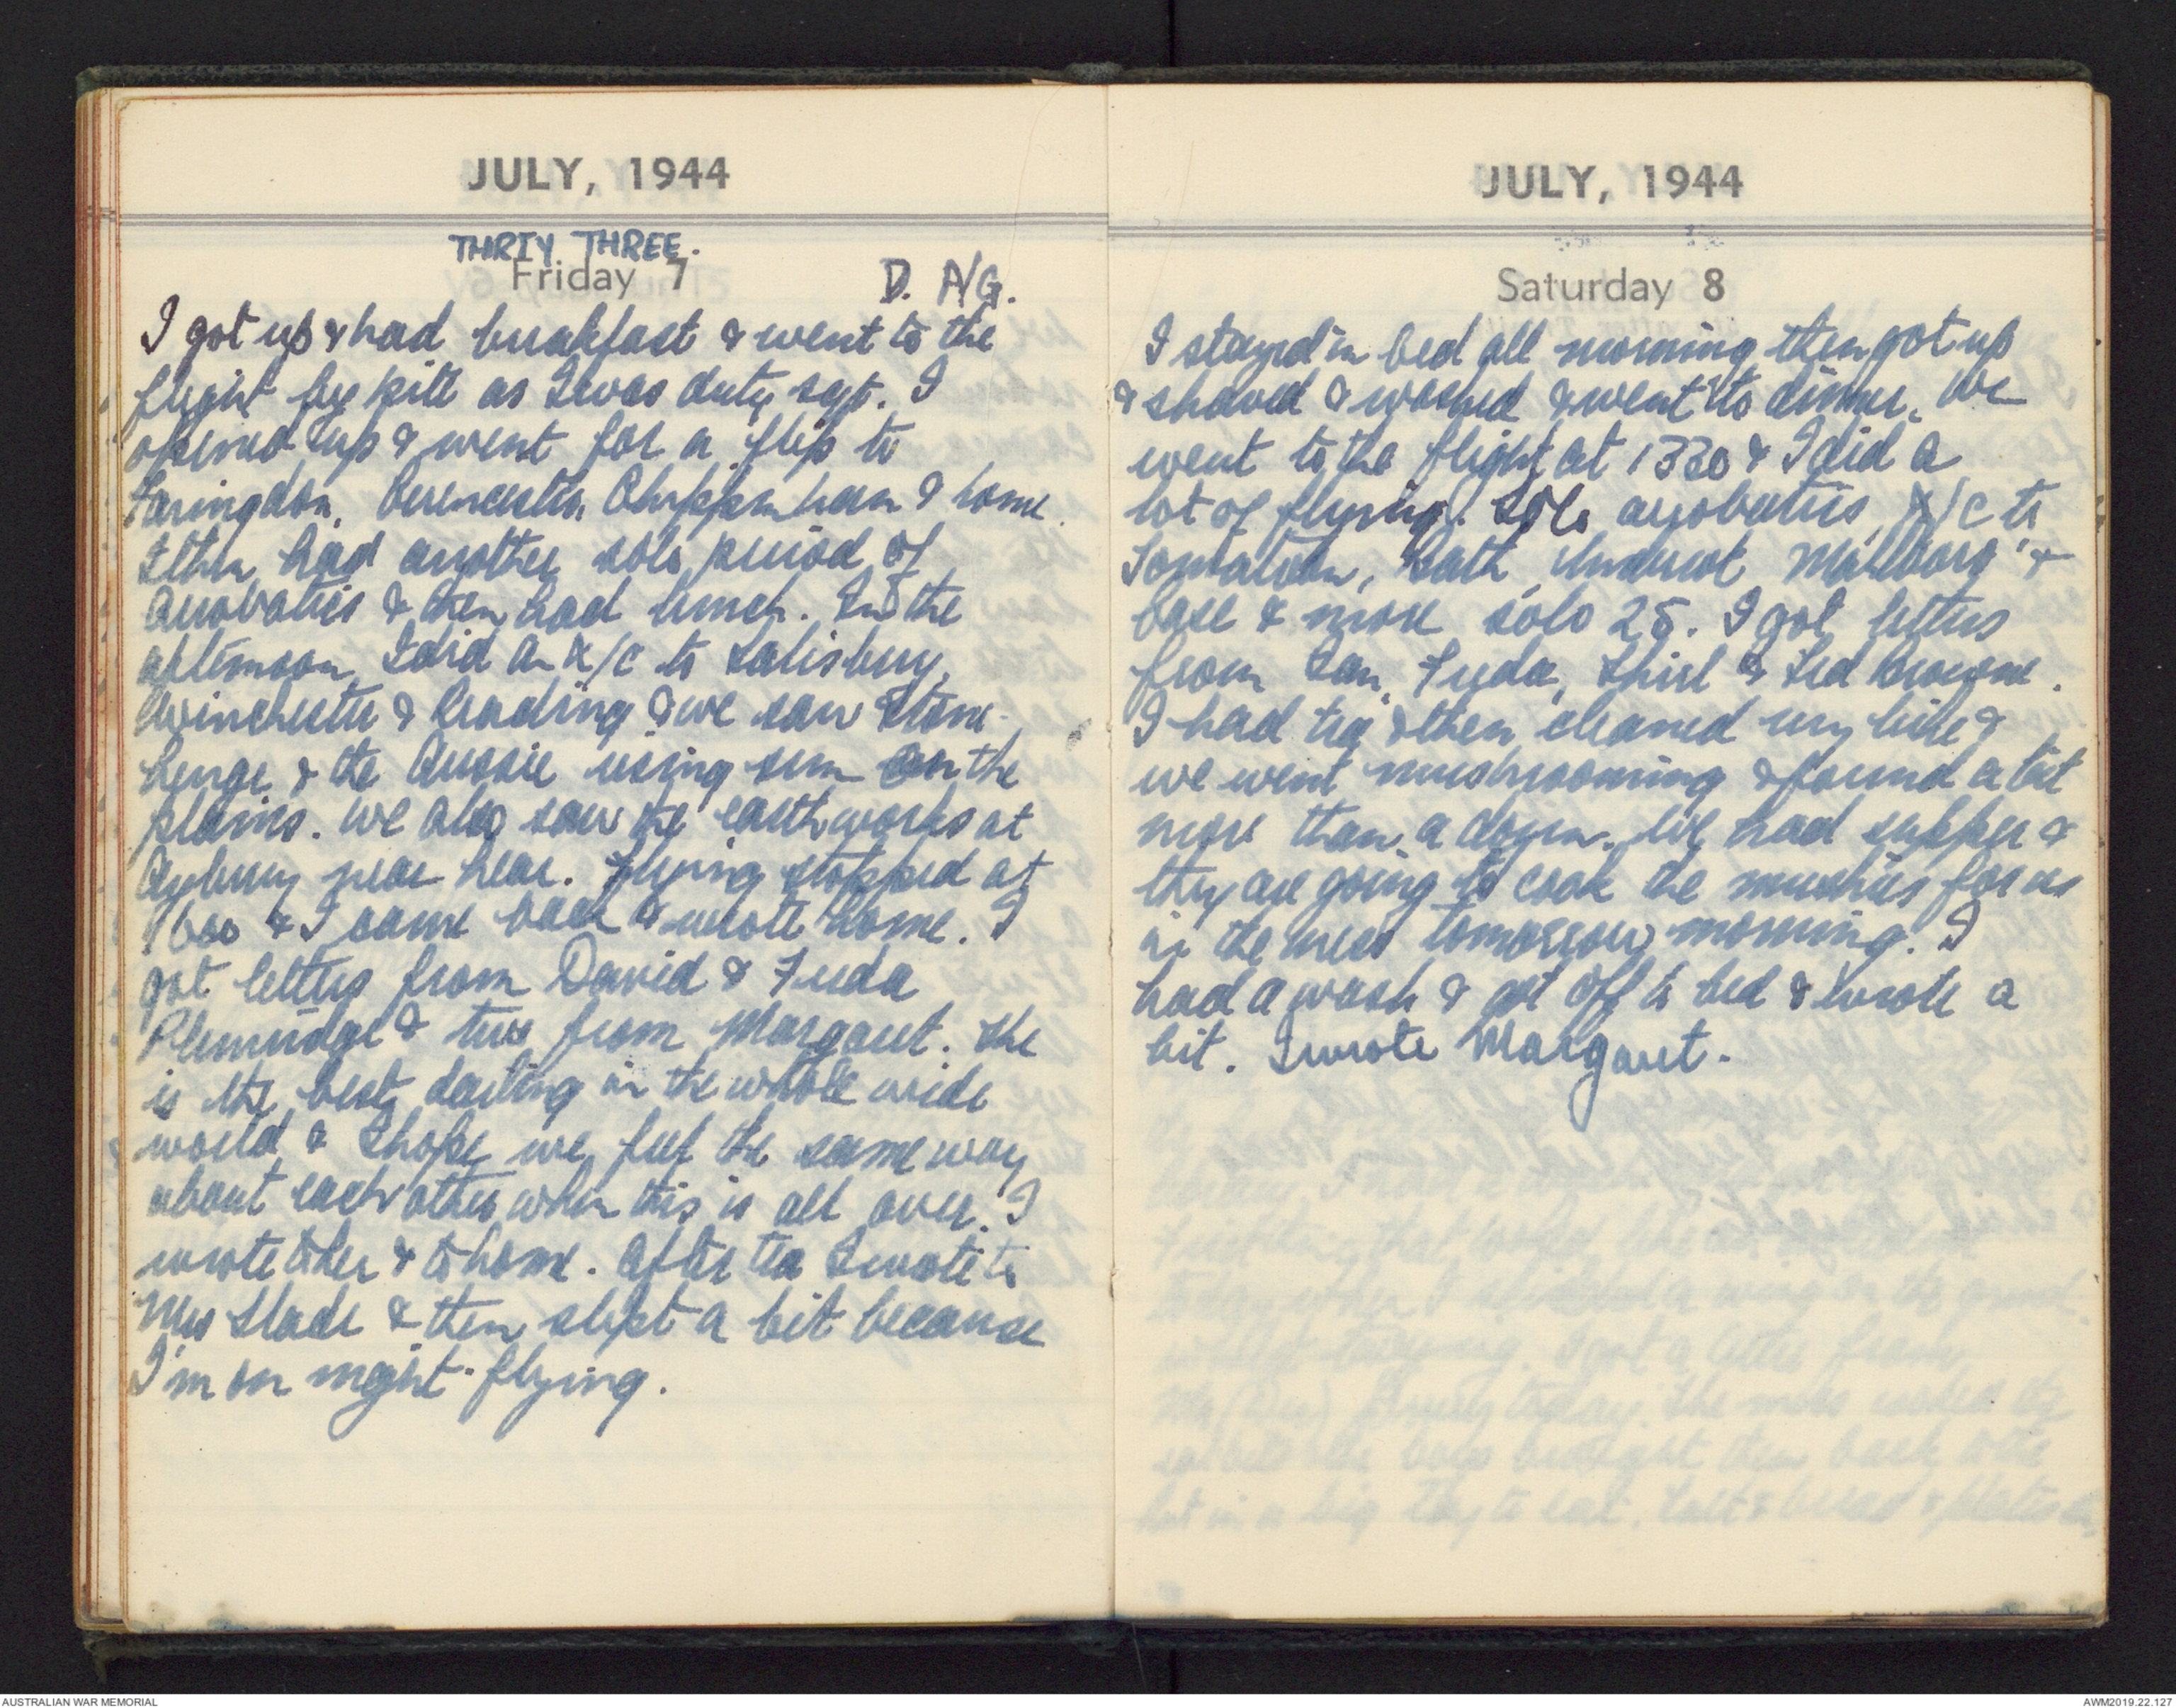 JULY, 1944
THRITY THREE.
Friday 7
D. A/G.
I got up & had breakfast & went to the
flight by as I was duty sgt. I
opened up & went for a flip to
Faringdon, Cirencester, Chippenham & home.
I then had another solo period of
aerobatics & then had lunch. In the
afternoon I did an X/C to Salisbury,
Winchester & Reading & we saw Stone-
henge & the Aussie rising sun on the
plains. We also saw the earthworks at
near hear. Flying stopped at
1600 & I came back & wrote home. I
got letters from David & Freda
& two from Margaret. She
is the best darling in the whole wide
world & I hope we feel the same way
about each other when this is all over. I
wrote to her & to home. After tea I wrote to
Mrs Slade & then slept a bit because
I'm on night-flying.
JULY, 1944
Saturday 8
I stayed in bed all morning then got up
& shaved & washed & went to dinner. We
went to the flight at 1330 & I did a
lot of flying. Solo aerobatics, X/C to
Bath, &
base & more solo 25. I got letters
from Ian, Freda, Shirl & Ted Browne.
I had tea & then cleaned my bike &
we went mushrooming & found a bit
more than a dozen. We had supper &
they are going to cook the mushies for us
in the mess tomorrow morning. I
had a wash & got off to bed & wrote a
bit. I wrote Margaret.
AUSTRALIAN WAR MEMORIAL
AWM2019.22.127